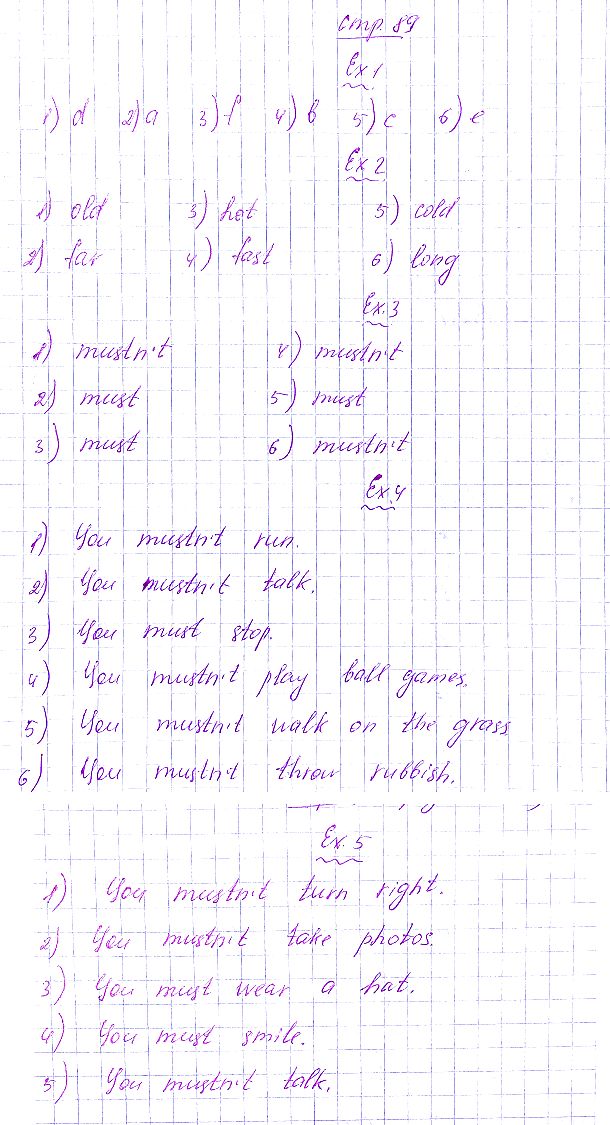 стр. 89
Ex 1
1) d 2) a 3) f 4) b 5) c 6) e
Ex 2
1) old 3) hot 5) cold
2) far 4) fast 6) long
Ex. 3
1) mustn't 4) mustn't
2) must 5) must
3) must 6) mustn't
Ex. 4
1) You mustn't run.
2) You mustn't talk.
3) You must stop.
4) You mustn't play ball games.
5) You mustn't walk on the grass
6) You mustn't throw rubbish.
Ex. 5
1) You mustn't turn right.
2) You mustn't take photos.
3) You must wear a hat.
4) You must smile.
5) You mustn't talk.